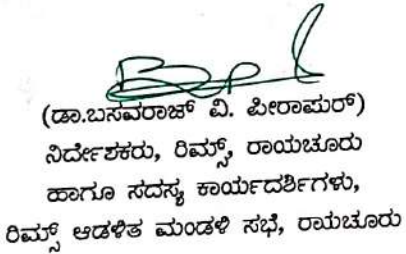 (ಡಾ.ಬಸವರಾಜ್ ವಿ. ಪೀರಾಪುರ್)
ನಿರ್ದೇಶಕರು, ರಿಮ್ಸ್, ರಾಯಚೂರು
ಹಾಗೂ ಸದಸ್ಯ ಕಾರ್ಯದರ್ಶಿಗಳು,
ರಿಮ್ಸ್ ಆಡಳಿತ ಮಂಡಳಿ ಸಭೆ, ರಾಯಚೂರು